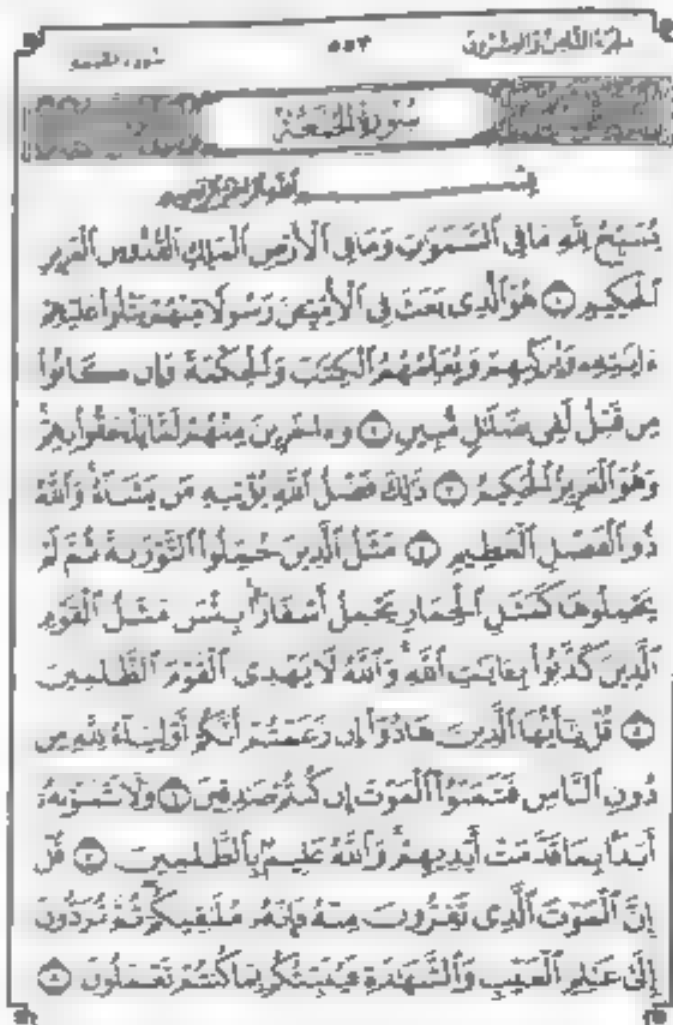 سُورَةُ الجُمُعَةِ ٥٥٣ الجُزْءُ الثَّامِنُ وَالعِشْرُونَ
سُورَةُ الجُمُعَةِ
بِسْمِ ٱللَّهِ ٱلرَّحْمَٰنِ ٱلرَّحِيمِ
يُسَبِّحُ لِلَّهِ مَا فِى ٱلسَّمَٰوَٰتِ وَمَا فِى ٱلْأَرْضِ ٱلْمَلِكِ ٱلْقُدُّوسِ ٱلْعَزِيزِ
ٱلْحَكِيمِ ١ هُوَ ٱلَّذِى بَعَثَ فِى ٱلْأُمِّيِّۦنَ رَسُولًا مِّنْهُمْ يَتْلُوا۟ عَلَيْهِمْ
ءَايَٰتِهِۦ وَيُزَكِّيهِمْ وَيُعَلِّمُهُمُ ٱلْكِتَٰبَ وَٱلْحِكْمَةَ وَإِن كَانُوا۟
مِن قَبْلُ لَفِى ضَلَٰلٍ مُّبِينٍ ٢ وَءَاخَرِينَ مِنْهُمْ لَمَّا يَلْحَقُوا۟ بِهِمْ
وَهُوَ ٱلْعَزِيزُ ٱلْحَكِيمُ ٣ ذَٰلِكَ فَضْلُ ٱللَّهِ يُؤْتِيهِ مَن يَشَآءُ وَٱللَّهُ
ذُو ٱلْفَضْلِ ٱلْعَظِيمِ ٤ مَثَلُ ٱلَّذِينَ حُمِّلُوا۟ ٱلتَّوْرَىٰةَ ثُمَّ لَمْ
يَحْمِلُوهَا كَمَثَلِ ٱلْحِمَارِ يَحْمِلُ أَسْفَارًۢا بِئْسَ مَثَلُ ٱلْقَوْمِ
ٱلَّذِينَ كَذَّبُوا۟ بِـَٔايَٰتِ ٱللَّهِ وَٱللَّهُ لَا يَهْدِى ٱلْقَوْمَ ٱلظَّٰلِمِينَ
٥ قُلْ يَٰٓأَيُّهَا ٱلَّذِينَ هَادُوٓا۟ إِن زَعَمْتُمْ أَنَّكُمْ أَوْلِيَآءُ لِلَّهِ مِن
دُونِ ٱلنَّاسِ فَتَمَنَّوُا۟ ٱلْمَوْتَ إِن كُنتُمْ صَٰدِقِينَ ٦ وَلَا يَتَمَنَّوْنَهُۥٓ
أَبَدًۢا بِمَا قَدَّمَتْ أَيْدِيهِمْ وَٱللَّهُ عَلِيمٌۢ بِٱلظَّٰلِمِينَ ٧ قُلْ
إِنَّ ٱلْمَوْتَ ٱلَّذِى تَفِرُّونَ مِنْهُ فَإِنَّهُۥ مُلَٰقِيكُمْ ثُمَّ تُرَدُّونَ
إِلَىٰ عَٰلِمِ ٱلْغَيْبِ وَٱلشَّهَٰدَةِ فَيُنَبِّئُكُم بِمَا كُنتُمْ تَعْمَلُونَ ٨